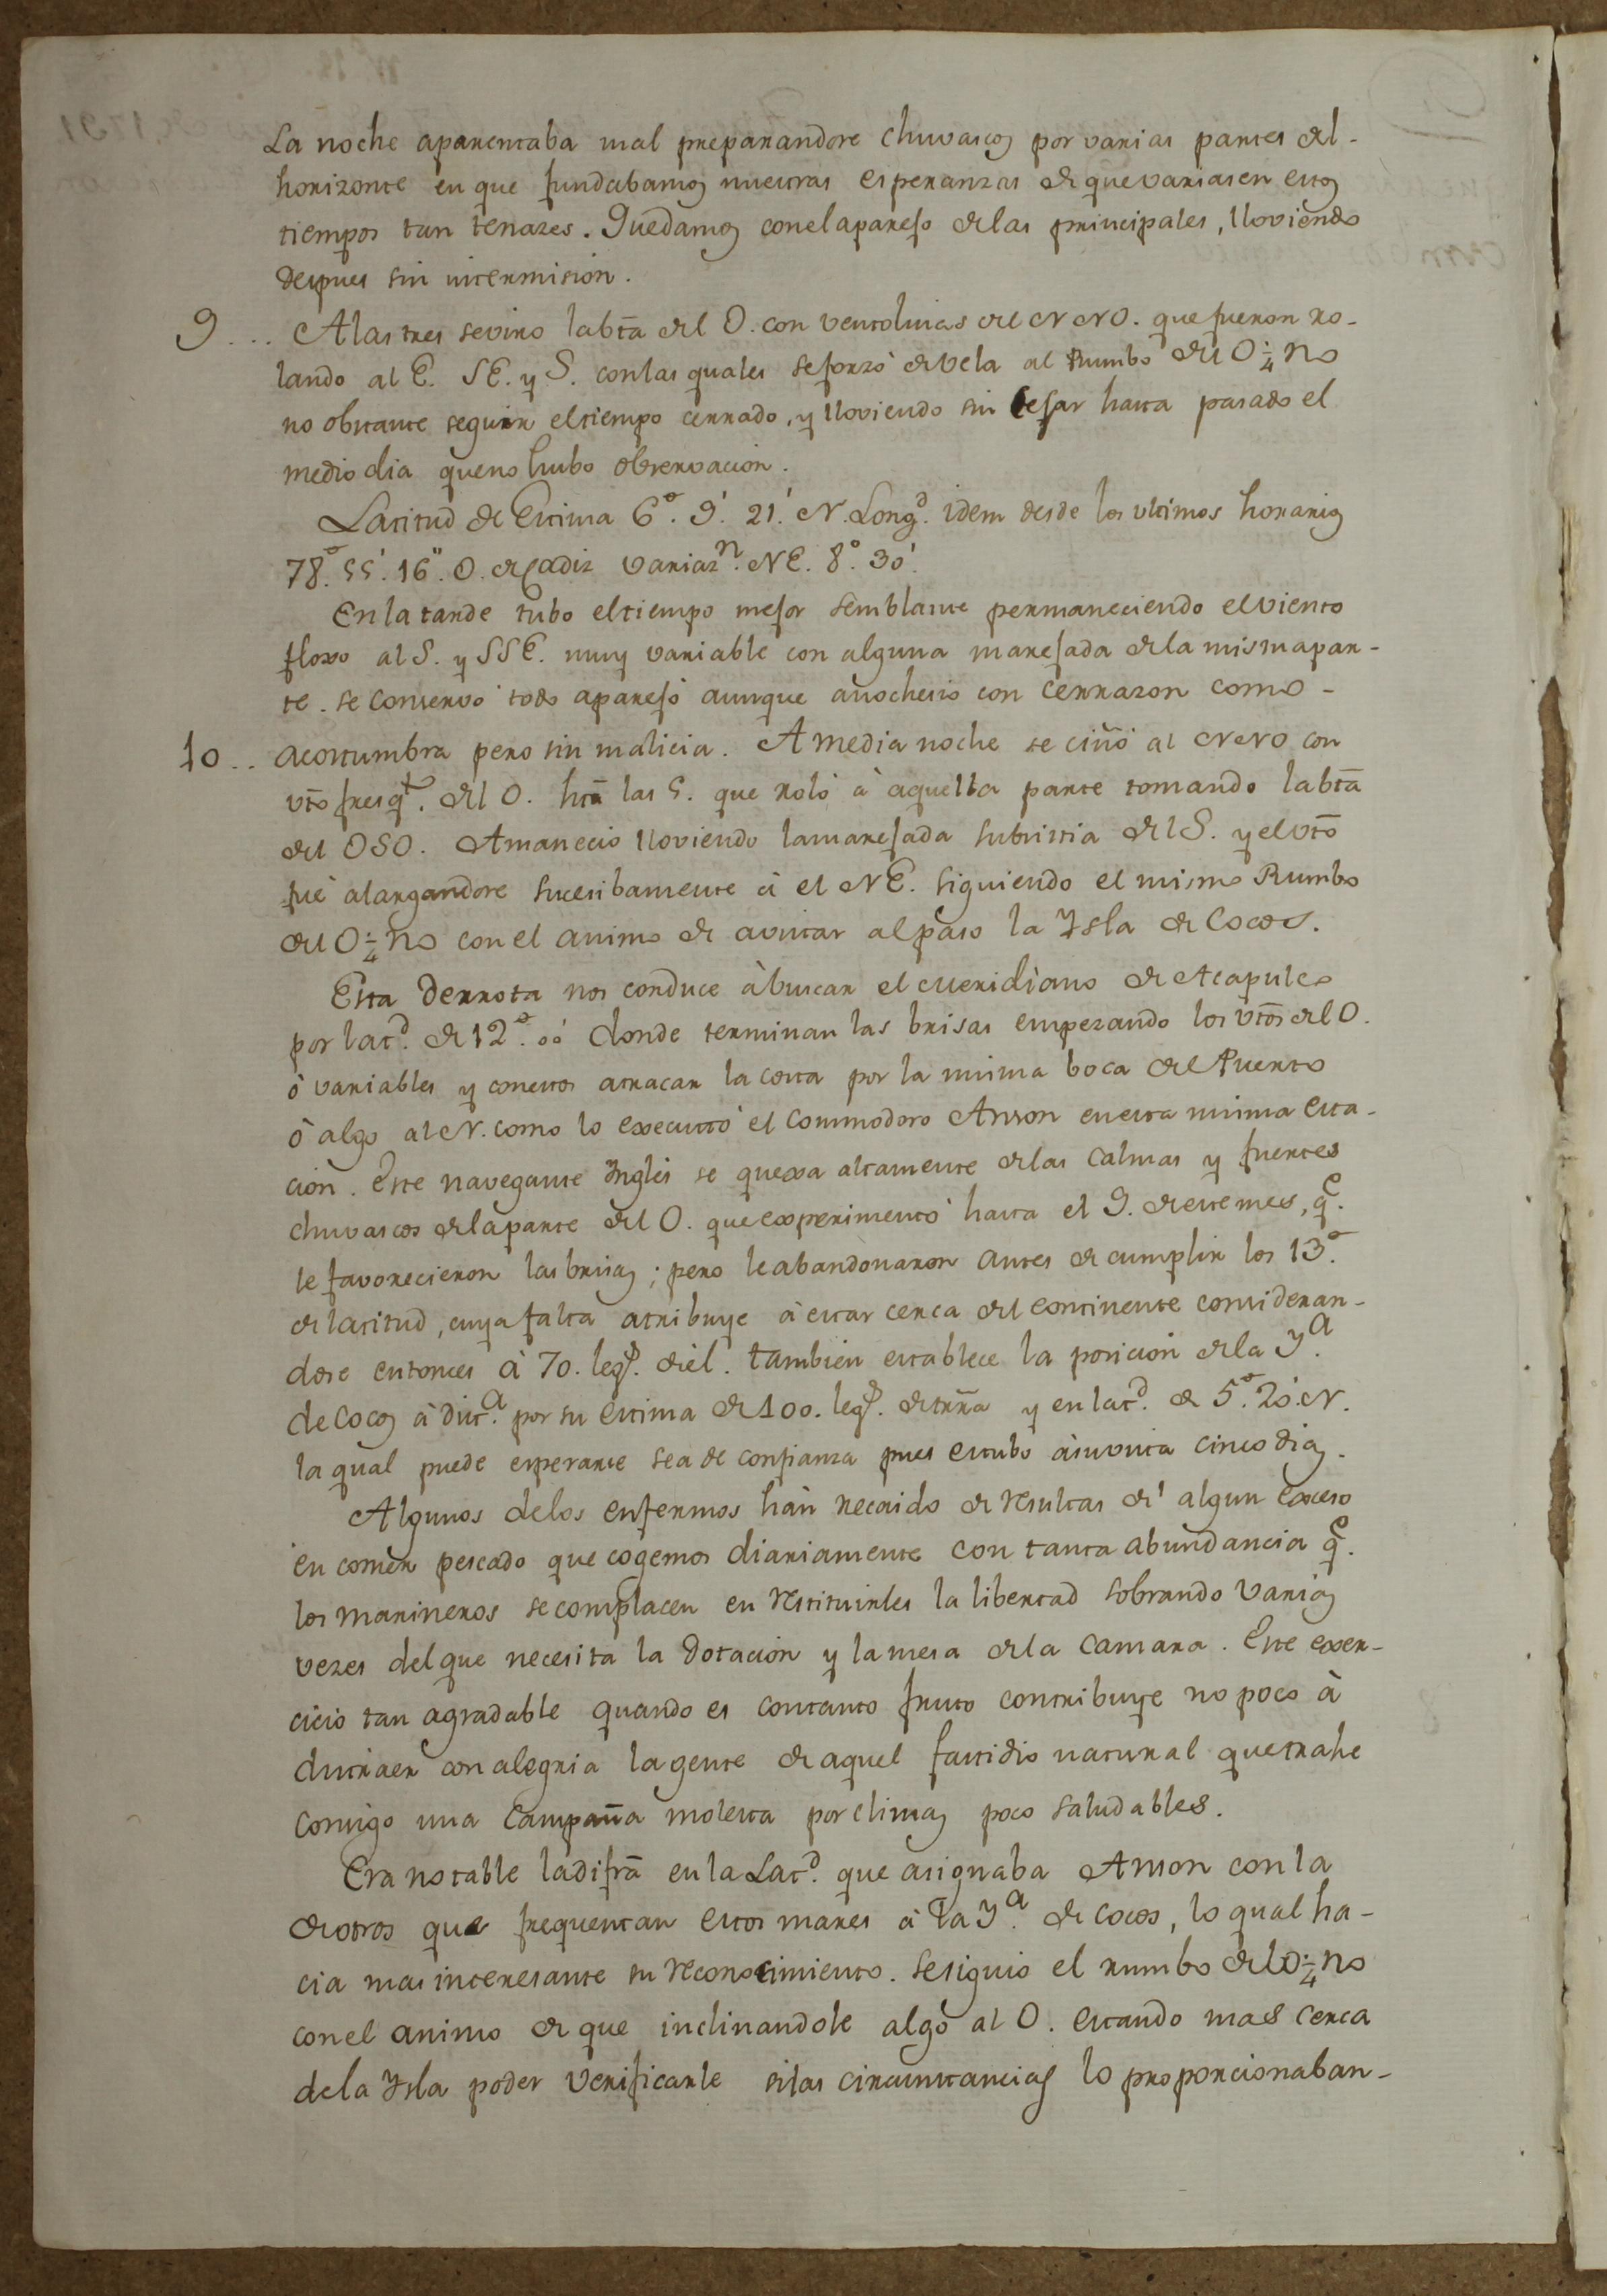 La noche aparentaba mal preparandose chuvascos por varias partes del-
horizonte en que fundabamos nuestras esperanzas de que variasen estos
tiempos tan tenazes. Quedamos con el aparejo de las principales, lloviendo
despues sin intermision.
9... A las tres se vino la bta del O. con ventolinas del NNO. que fueron ro-
lando al E. SE. y S. con las quales se forzó de vela al Rumbo del O¼NO
no obstante seguir el tiempo cerrado, y lloviendo sin cesar hasta pasado el
medio dia que no hubo observacion.
Latitud de Estima 6°. 9'. 21'. N. Longd. idem desde los ultimos horarios
78°. 55'. 16". O. de Cadiz variazn. NE. 8°. 30'.
En la tarde tubo el tiempo mejor semblante permaneciendo el viento
floxo al S. y SSE. muy variable con alguna marejada de la misma par-
te. se conservó todo aparejo aunque anochecio con cerrazon como-
10.. acostumbra pero sin malicia. A media noche se ciñó al NNO con
vto fresqto. del O. hta las 5. que roló à aquella parte tomando la bta
del OSO. Amanecio lloviendo la marejada subsistia del S. y el vto
fué alargandose sucesibamente à el NE. siguiendo el mismo Rumbo
del O¼NO con el animo de avistar al paso la Ysla de Cocos.
Esta Derrota nos conduce à buscar el Meridiano de Acapulco
por latd. de 12°. 00' donde terminan las brisas empezando los vtos del O.
ò variables y con estos atracar la costa por la misma boca del Puerto
ò algo al N. como lo executó el Commodoro Anson en esta misma esta-
cion. Este navegante Ynglés se quexa altamente de las calmas y fuertes
chuvascos de la parte del O. que experimentó hasta el 9. de este mes, qe.
le favorecieron las brisas; pero le abandonaron antes de cumplir los 13°.
de latitud, cuya falta atribuye à estar cerca del continente consideran-
dose entonces à 70. legs. de él. tambien establece la posicion de la Ya.
de Cocos à dista. por su estima de 100. legs. de trra y en latd. de 5°. 20'. N.
la qual puede esperarse sea de confianza pues estubo à su vista cinco dias.
Algunos de los enfermos hán recaido de resultas de algun exceso
en comer pescado que cogemos diariamente con tanta abundancia qe.
los marineros se complacen en restituirles la libertad sobrando varias
vezes del que necesita la Dotacion y la mesa de la camara. Este exer-
cicio tan agradable quando es con tanto fruto contribuye no poco à
distraer con alegria la gente de aquel fastidio natural que trahe
consigo una campaña molesta por climas poco saludables.
Era notable la difra en la Latd. que asignaba Anson con la
de otros que frequentan estos mares à la Ya. de Cocos, lo qual ha-
cia mas interesante su reconocimiento. se siguió el rumbo del O¼NO
con el animo de que inclinandole algo al O. estando mas cerca
de la Ysla poder verificarle si las circunstancias lo proporcionaban-